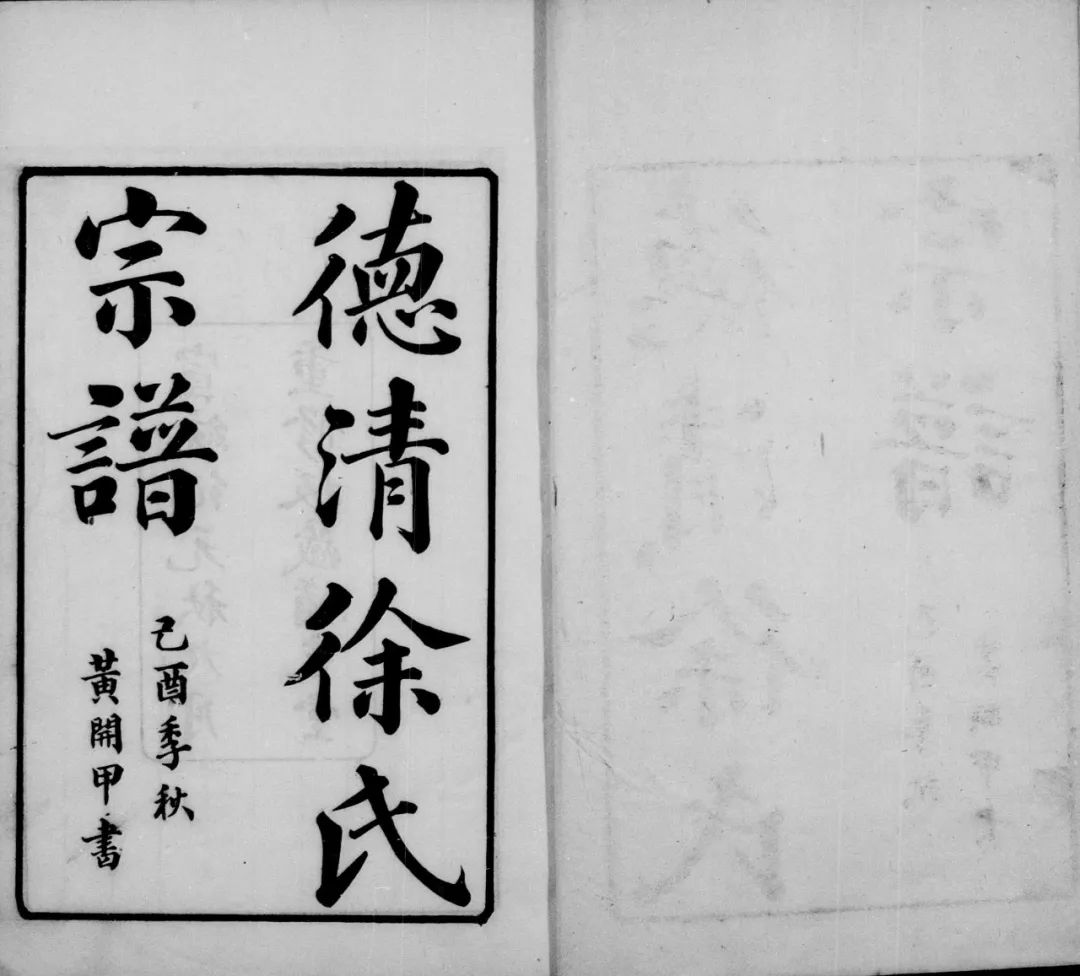 德清徐氏
宗譜
己酉季秋
黃開甲書